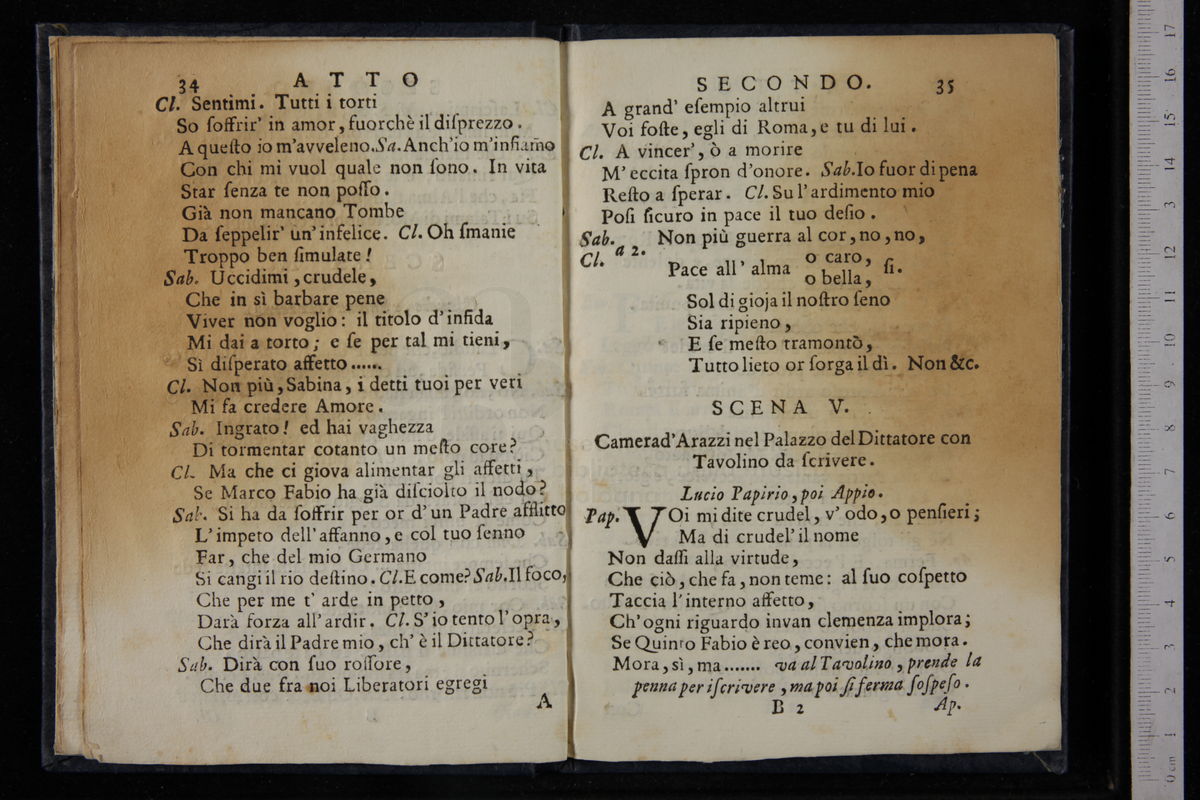 34 ATTO
Cl. Sentimi. Tutti i torti
So ſoffrir' in amor, fuorchè il diſprezzo.
A queſto io m'avveleno. Sa. Anch'io m'infiammo
Con chi mi vuol quale non ſono. In vita
Star ſenza te non poſſo.
Già non mancano Tombe
Da ſeppelir' un'infelice. Cl. Oh ſmanie
Troppo ben ſimulate!
Sab. Uccidimi, crudele,
Che in sì barbare pene
Viver non voglio: il titolo d'infida
Mi dai a torto; e ſe per tal mi tieni,
Sì diſperato affetto......
Cl. Non più, Sabina, i detti tuoi per veri
Mi fa credere Amore.
Sab. Ingrato! ed hai vaghezza
Di tormentar cotanto un meſto core?
Cl. Ma che ci giova alimentar gli affetti,
Se Marco Fabio ha già diſciolto il nodo?
Sab. Si ha da ſoffrir per or d'un Padre afflitto
L'impeto dell'affanno, e col tuo ſenno
Far, che del mio Germano
Si cangi il rio deſtino. Cl. E come? Sab. Il foco,
Che per me t'arde in petto,
Darà forza all'ardir. Cl. S'io tento l'opra,
Che dirà il Padre mio, ch'è il Dittatore?
Sab. Dirà con ſuo roſſore,
Che due fra noi Liberatori egregi
A
SECONDO. 35
A grand' eſempio altrui
Voi foſte, egli di Roma, e tu di lui.
Cl. A vincer', ò a morire
M'eccita ſpron d'onore. Sab. Io fuor di pena
Reſto a ſperar. Cl. Su l'ardimento mio
Poſi ſicuro in pace il tuo deſio.
Sab. Cl. a 2. Non più guerra al cor, no, no,
Pace all'alma o caro, o bella, ſi.
Sol di gioja il noſtro ſeno
Sia ripieno,
E ſe meſto tramontò,
Tutto lieto or ſorga il dì. Non &c.
SCENA V.
Camera d'Arazzi nel Palazzo del Dittatore con
Tavolino da ſcrivere.
Lucio Papirio, poi Appio.
Pap. VOi mi dite crudel, v'odo, o penſieri;
Ma di crudel' il nome
Non daſſi alla virtude,
Che ciò, che fa, non teme: al ſuo coſpetto
Taccia l'interno affetto,
Ch'ogni riguardo invan clemenza implora;
Se Quinto Fabio è reo, convien, che mora.
Mora, sì, ma....... va al Tavolino, prende la
penna per iſcrivere, ma poi ſi ferma ſoſpeſo.
B 2 Ap.